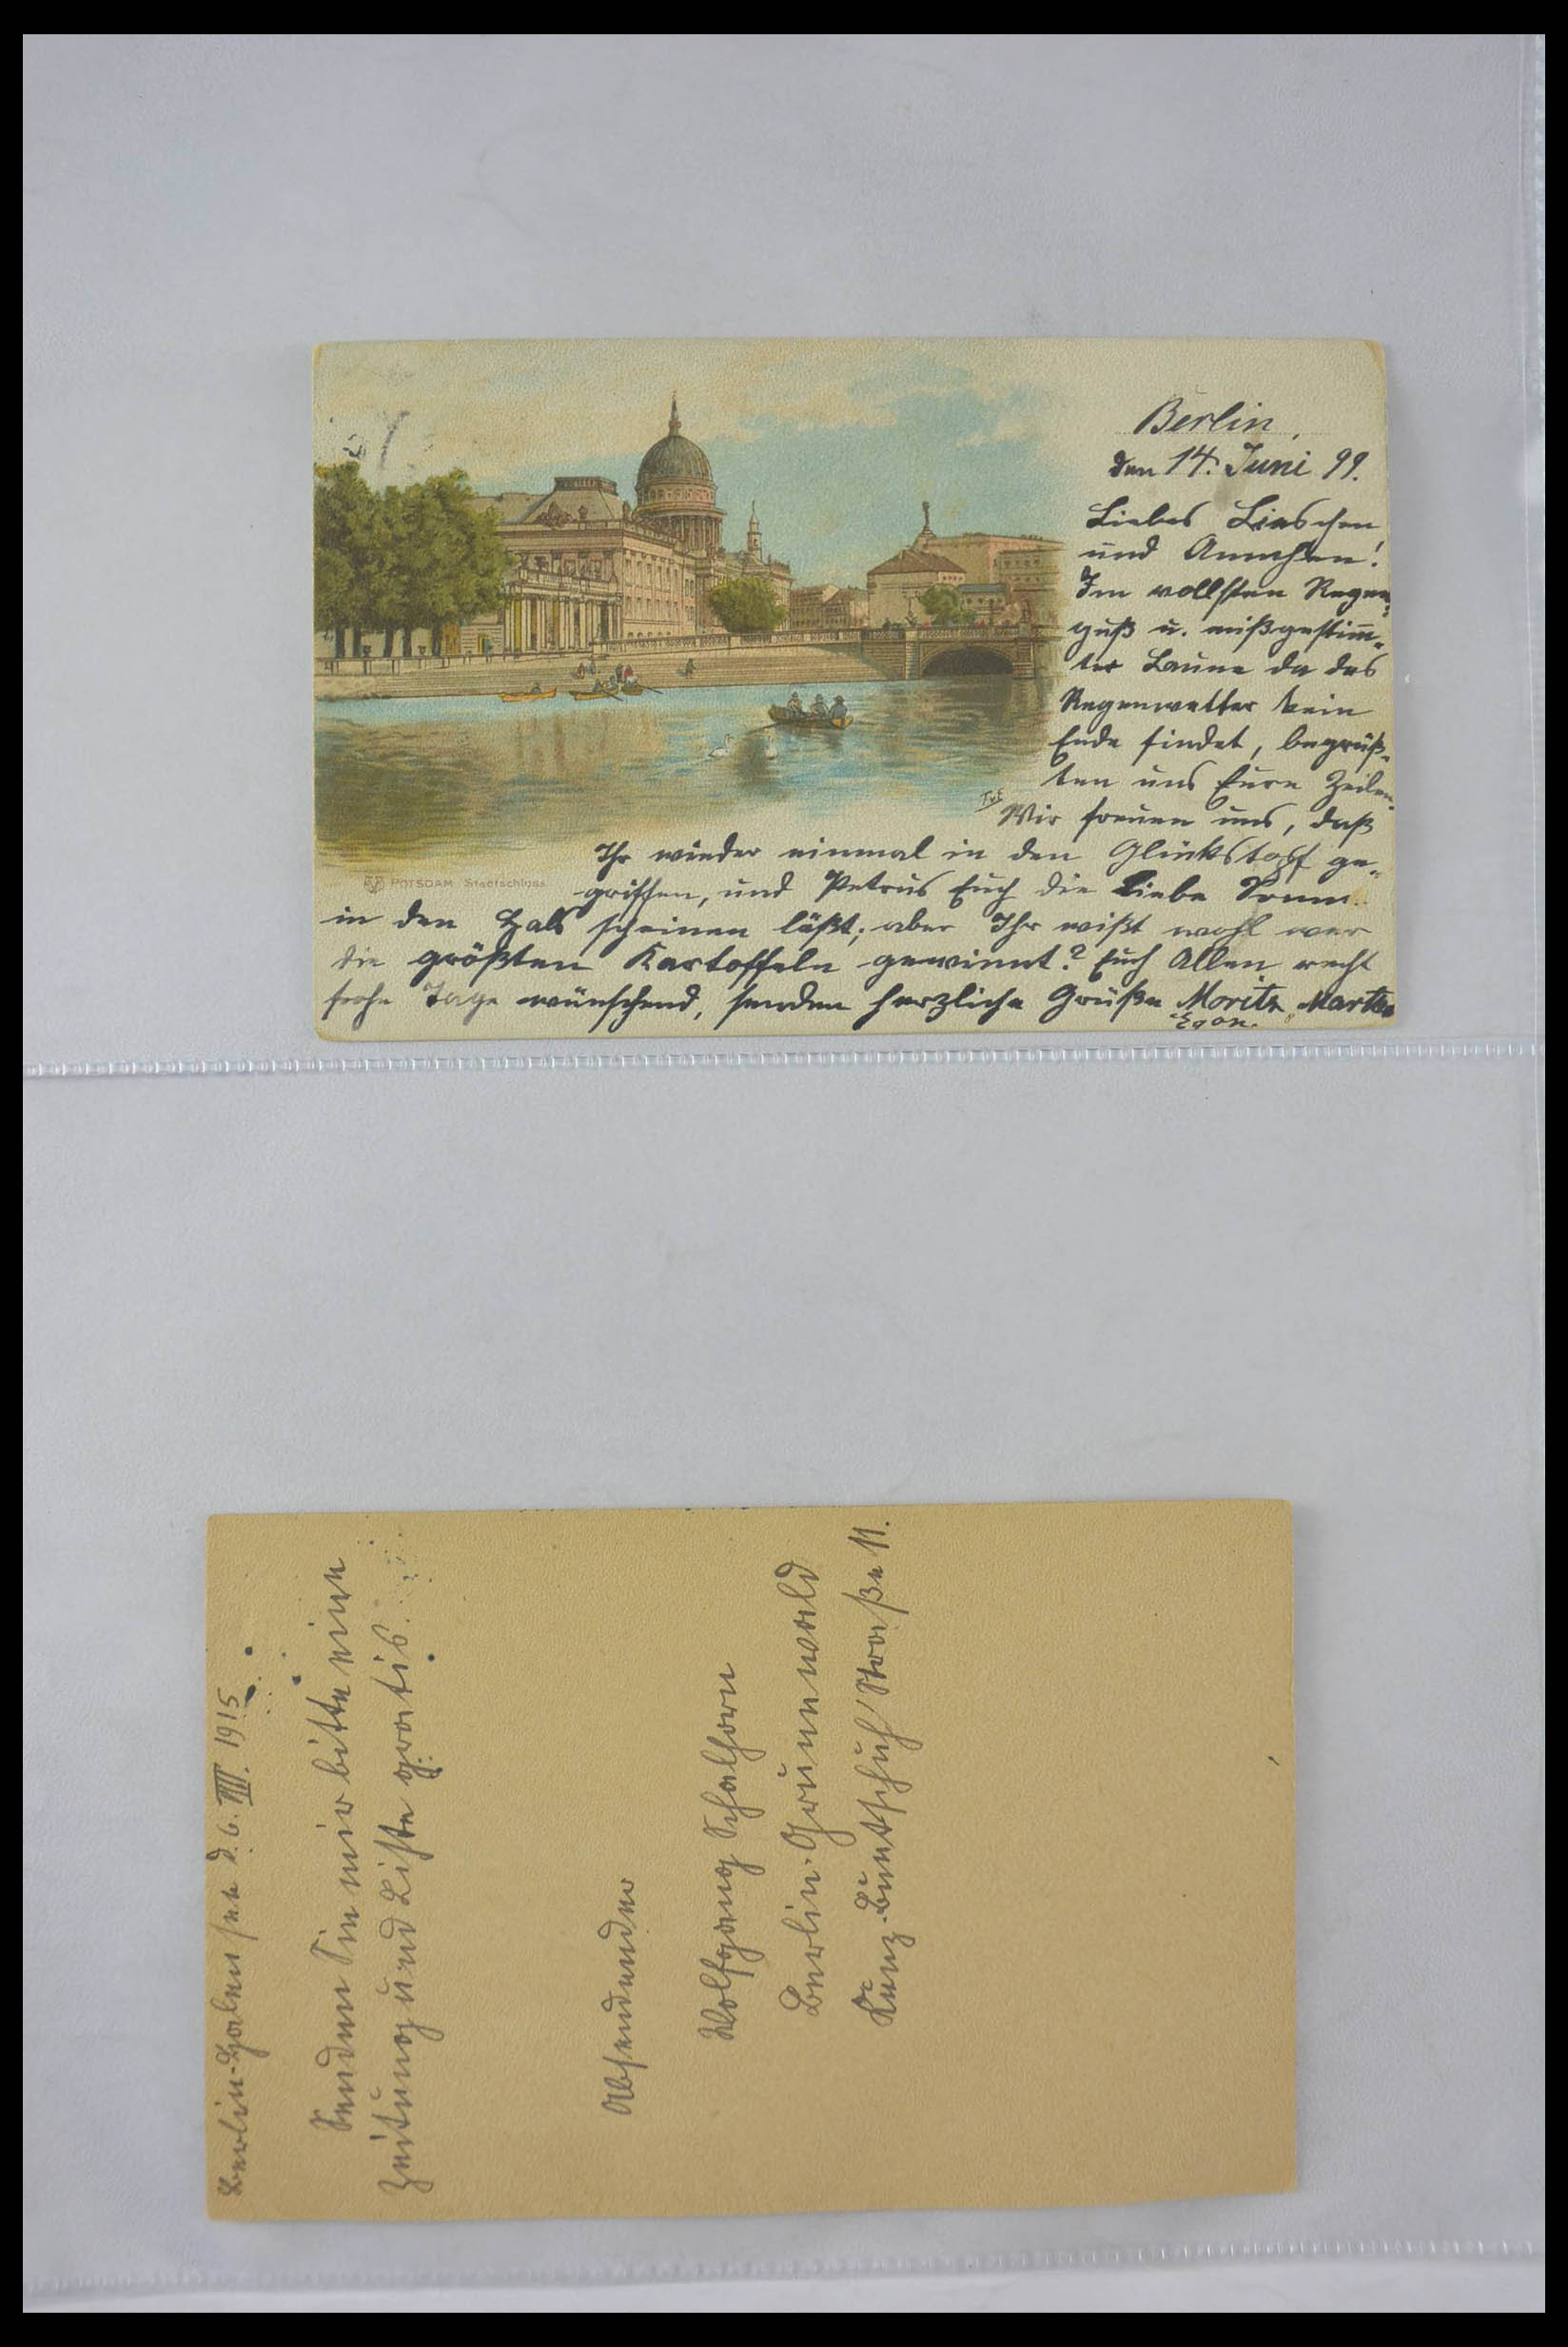 Berlin,
den 14. Juni 99.
Liebes Lieschen
und Annchen!
Im vollsten Regen-
guß u. mißgestim̄-
ter Laune da das
Regenwetter kein
Ende findet, begrüß-
ten uns Eure Zeilen.
Wir freuen uns, daß
Ihr wieder einmal in den Glückstopf ge-
griffen, und Petrus Euch die Liebe Sonne
in den Hals scheinen läßt; aber Ihr wißt wohl wer
die größten Kartoffeln gewinnt? Euch Allen recht
frohe Tage wünschend, senden herzliche Grüße Moritz, Martha
Egon.
TvE
POTSDAM Stadtschloss
Berlin-Halensee d. 6. VIII. 1915.
Senden Sie mir bitte eine
Zeitung und Liste gratis.
Absender
Wolfgang Schalhorn
Berlin-Grunewald
Kunz-Buntschuh Straße 11.